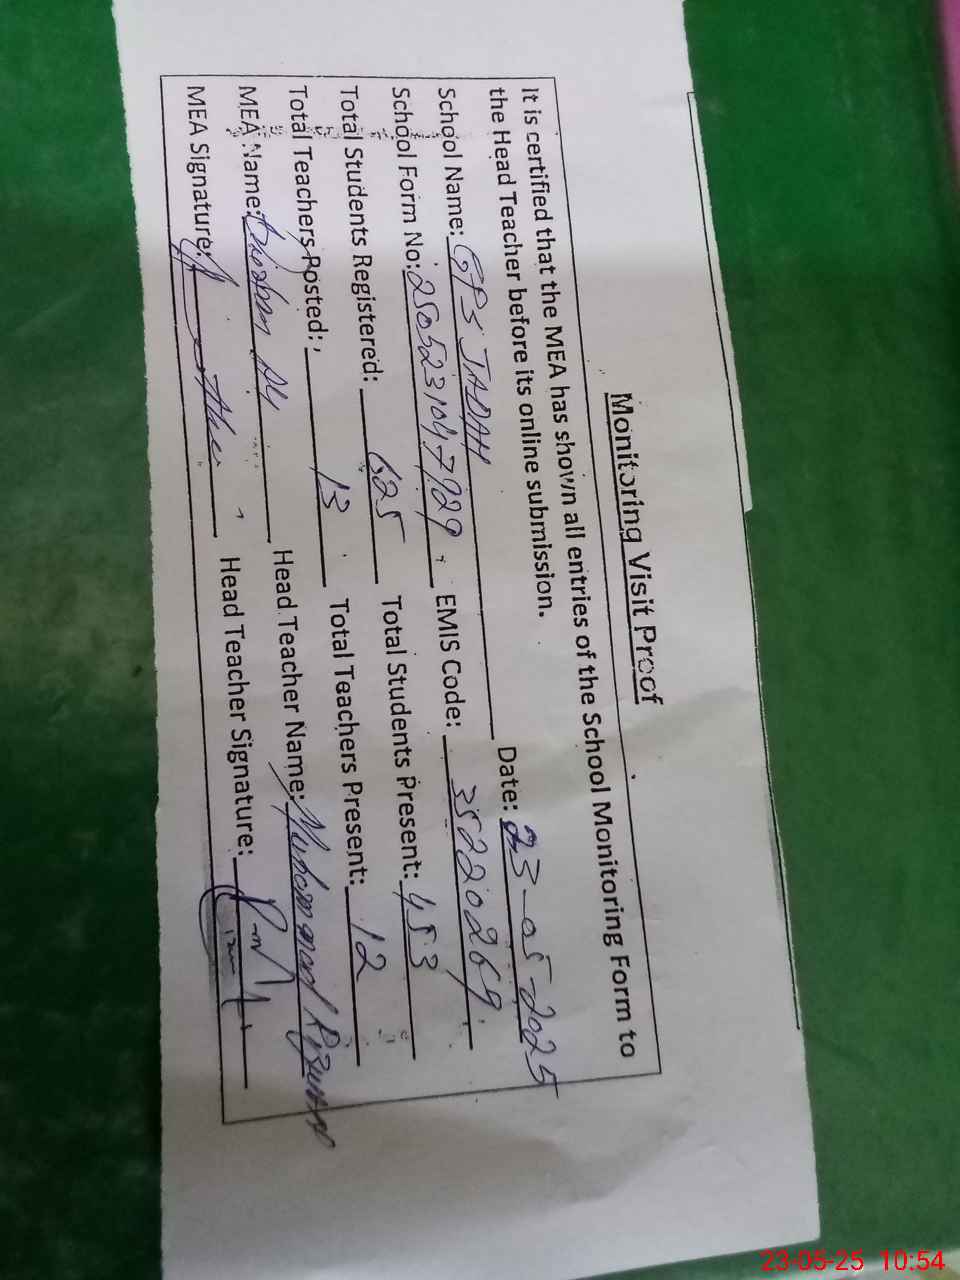 Monitoring Visit Proof
It is certified that the MEA has shown all entries of the School Monitoring Form to
the Head Teacher before its online submission.
School Name: GPS JADAH Date: 23-05-2025
School Form No: 2505231047929 EMIS Code: 35220269
Total Students Registered: 625 Total Students Present: 453
Total Teachers Posted: 13 Total Teachers Present: 12
MEA Name: Ali Head Teacher Name: Muhammad Rizwan
MEA Signature: Head Teacher Signature:
23-05-25 10:54